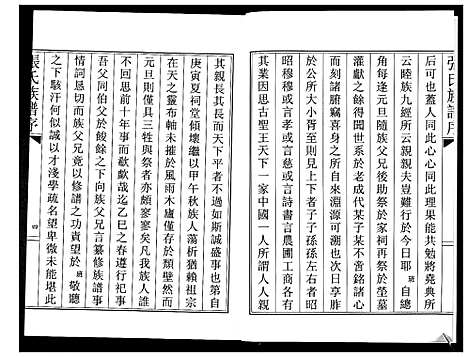 張氏族譜序
後可也蓋人同此心心同此理果能將堯典所
云睦族九經所云親親夫豈難行於今日耶 班自總
角每逢元旦隨族父兄後助祭於家祠再祭於
獻爵之餘得聞世系於老成代某子某不啻瞭如
而列諸腑竊喜身之所自來淵源可溯也次日享胙
於公所大小胥至則見上下者子子孫孫左右者昭
昭穆穆或言孝或言慈或言詩書言農圃工商各有
其業因思古聖王天下一家中國一人所謂人人親
其親長其長而天下平者不過如斯誠盛事也第自
庚寅夏祠堂傾壞繼以甲午秋族人蕩析猶賴祖宗
在天之靈布軸未摧於風雨木廬僅存於頽壁然而
元旦則僅具三牲與祭者亦頗寥寥矣凡我族人誰
不回思前十年事而欷歔哉迄乙巳之春元旦祀事
吾父同伯父於餕餘之下向族父兄言纂修族譜事
情詞懇切而族父兄竟以修譜之功責望於 班 敬聽
之下駭汗何似誠以才淺學疏名望卑微未能堪此
張氏族譜序
四